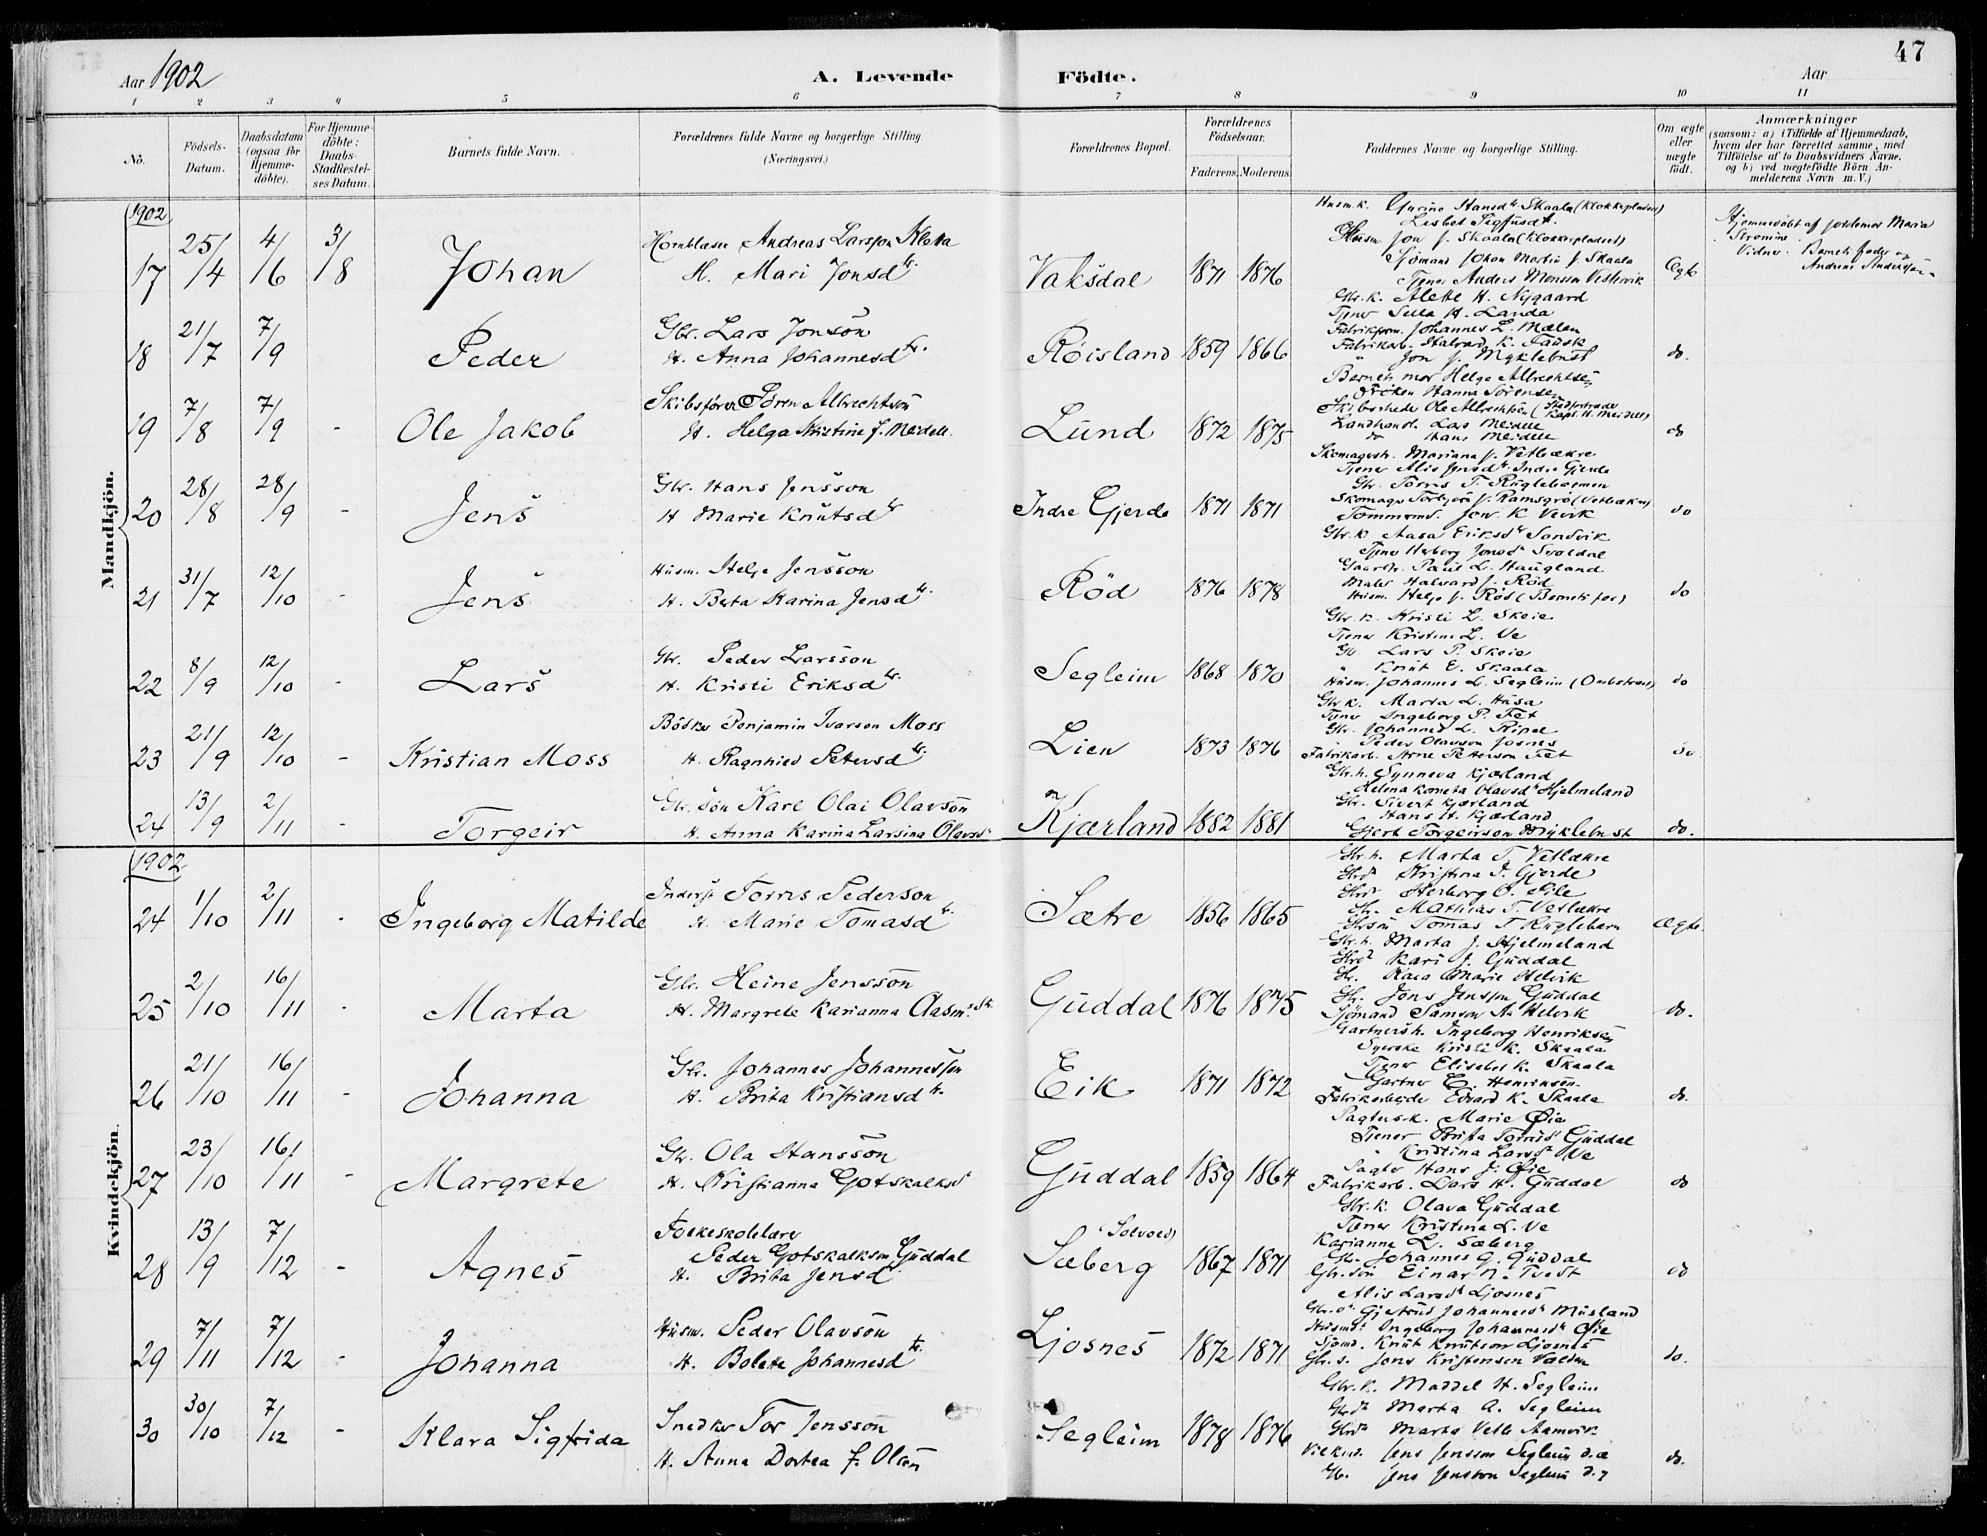 47
Aar 1902 A. Levende Födte. Aar
1 2 3 4 5 6 7 8 9 10 11
No.
Födsels-Datum.
Daabsdatum (ogsaa for Hjemme-döbte).
For Hjemme-döbte: Daabs-Stadfæstel-ses Datum.
Barnets fulde Navn.
Forældrenes fulde Navne og borgerlige Stilling (Næringsvei.)
Forældrenes Bopæl.
Forældrenes Födselsaar.
Faderens. Moderens.
Faddernes Navne og borgerlige Stilling.
Om ægte eller uægte födt.
Anmærkninger
(saasom: a) i Tilfælde af Hjemmedaab, hvem der har forrettet samme, med Tilföielse af to Daabsvidners Navne, og b) ved uægtefödte Börn Anmelderens Navn m. V.)
Mandkjön.
1902
17 25/4 4/6 3/8 Johan
Hornblæser Andreas Larsson Kloka
H. Mari Jonsdtr.
Vaksdal 1871 1876
Husm.k. Gurine Hansdtr Skaala (Klokkerpladset)
Lisbet Sigfusdt
Husm. Jon J. Skaala (Klokkerpladset)
Sjömand Johan Martin J. Skaala
Tjener Anders Monsen Vestervik
Ægte
Hjemmedöbt af jordemor Maria
Vidner: Barnets fader og
18 21/7 7/9 Peder
Gbr. Lars Jonson
H. Anna Johannesdtr.
Röisland 1859 1866
Gbr.k. Alette H. Nygaard
Tjener Sella H. Landa
Johannes L. Mælen
Fabrikarb.
" Jon J. Myklebust
do.
19 7/8 7/9 - Ole Jakob
Skibsförer Sören Albrechtson
H. Helga Kristine J. Meidell.
Lund 1872 1875
Barnets mor Helga Albrechtsen
Fröken Hanna Sörensen
Skibsrheder Ole Albrechtsen
Landhandl. Lars Meidell
do Hans Meidell
do
20 28/8 28/9 - Jens
Gbr. Hans Jensson
H Marie Knutsdtr
Indre Gjerde 1871 1871
Skomagerh. Mariana J. Vetlækre
Tjener Alis Jensdtr Indre Gjerde
Gbr. Torris T. Kuglebærnen
Tömmermd. Jon K Vevik
do
21 31/7 12/10 - Jens
Husm. Helge Jensson
H. Berta Karina Jensdtr.
Röd 1876 1878
Gbr.k. Aasa Eriksdtr Sandvik
Tjener Herborg Jonsdt
Paul L. Haugland
Maler Halvard J. Röd
Husm. Helge J. Röd (Barnets far)
do
22 8/9 12/10 - Lars
Gbr. Peder Larsson
H. Kristi Eriksdtr.
Segleim 1868 1870
Gbr.k. Kristi L. Skeie
Tjener Kristine L. Ve
Gbr. Lars P. Skeie
" Knut E. Skaala
Husm. Johannes L. Segleim
do
23 21/9 12/10 - Kristian Moss
Bödker Benjamin Ivarson Moss
H. Ragnhild Petersdtr.
Lien 1873 1876
Gbr k. Marta L. Husa
Tjener Ingeborg P. Fet
Gbr. Johannes L. Ripel
Peder Olavson Josnes
Fabrikarb. Arne Petterson Fet
do
24 13/9 2/11 - Torgeir
Gbr. sön Karl Olai Olavsön
H. Anna Karina Larsina Olavsdt
Kjærland 1882 1881
Gbr.h. Synneva Kjærland
Helena Olavsdtr Hjelmeland
Gbr. Sivert Kjærland
Hans H. Kjærland
Gjert Torgeirson Myklebust
do.
Kvindekjön.
1902
24 1/10 2/11 - Ingeborg Matilde
Inderst Torris Pederson
H. Marie Tomasdtr.
Sætre 1856 1865
Gbr.h. Marta T. Vetlækre
Gbrdt Kristina I. Gjerde
Gbrdt Herborg O. Eile
Gbr. Mathias T. Vetlækre
Gbrsön Tomas T Kuglebærn
Ægte.
25 2/10 16/11 - Marta
Gbr. Heine Jensson
H. Margrete Karianna Aasm.dtr.
Guddal 1876 1875
Gbr.h. Marta J. Hjelmeland
Gbrdt Kari J. Guddal
Gbr. Kara Marie Helvik
Gbr. Jens Jensson Guddal
Sjömand Samson A. Helvik
do.
26 21/10 16/11 - Johanna
Gbr. Johannes Johannessen
H. Brita Kristiansdtr.
Eik 1871 1872
Gartnersh. Ingeborg Henriksen
Syerske Kristi K. Skaala
Tjener Elisabet K. Skaala
Gartner E. Henrikson
Fabrikarbeide Edvard K. Skaala
do.
27 23/10 16/11 - Margrete
Gbr. Ola Hansson
H. Kristianna Gotskalksdt
Guddal 1859 1864
Sagtus.k. Marie Öie
Tjener Brita Tornsdt Guddal
" Kristina Larsdt Ve
Sagtv Hans J. Öie
Fabrikarb. Lars H. Guddal
do
28 13/9 7/12 - Agnes
Folkeskolelærer
Peder Gotskalksen Guddal
H. Brita Jensdt
(Solvold)
Sæberg 1867 1871
Gbr.k. Olava Guddal
Tjener Kristina L. Ve
Karianne L. Sæberg
Gbr. Johannes G. Guddal
Gbr.sön Einar N. Tvedt
do
29 7/11 7/12 - Johanna
Husm. Peder Olavson
H. Bolette Johannesdtr.
Ljosnes 1872 1871
Alis Larsdt Ljosnes
Gbr.dt. Gjertrud Johannesdt Musland
Husmdt Ingeborg Johannesdt Öie
Sjömd. Knut Knutson Ljosnes
Gbr.s. Jens Kristensen
do.
30 30/10 7/12 - Klara Sigfrida
Snedker Tor Jensson
H. Anna Dortea J. Olsen
Segleim 1878 1876
Gbr.k. Maddel H. Segleim
Gbrdt Marta A. Segleim
Gbrdt Marta Vetle Aamvik
Jens Jensson Segleim d.æ
Gbr. Jens Jensson Segleim d.y
do.